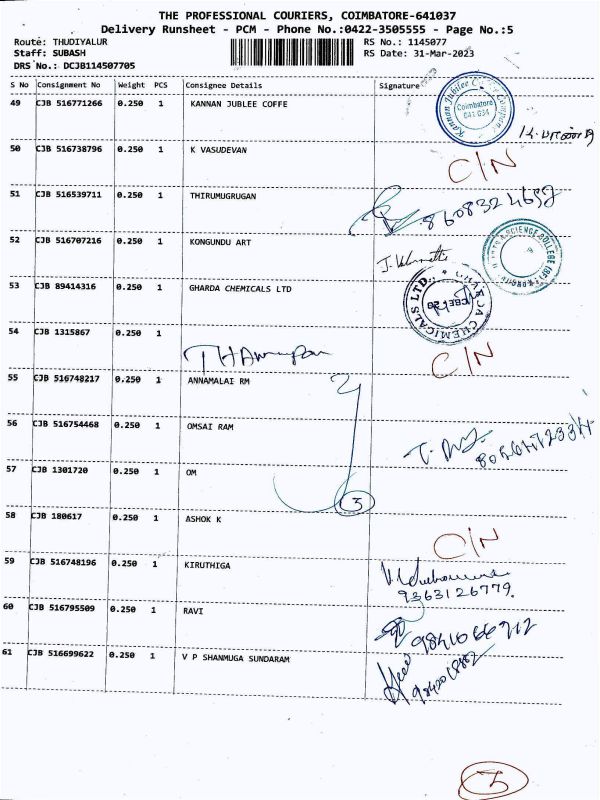 THE PROFESSIONAL COURIERS, COIMBATORE-641037
Delivery Runsheet - PCM - Phone No.:0422-3505555 - Page No.:5
Route: THUDIYALUR RS No.: 1145077
Staff: SUBASH RS Date: 31-Mar-2023
DRS No.: DCJB114507705
S No Consignment No Weight PCS Consignee Details Signature
49 CJB 516771266 0.250 1 KANNAN JUBLEE COFFE
Coimbatore
641 034
50 CJB 516738796 0.250 1 K VASUDEVAN C/N
51 CJB 516539711 0.250 1 THIRUMUGRUGAN 8608324652
52 CJB 516707216 0.250 1 KONGUNDU ART
53 CJB 89414316 0.250 1 GHARDA CHEMICALS LTD
GHARDA CHEMICALS LTD.
54 CJB 1315867 0.250 1 C/N
55 CJB 516748217 0.250 1 ANNAMALAI RM
56 CJB 516754468 0.250 1 OMSAI RAM
57 CJB 1301720 0.250 1 OM
58 CJB 180617 0.250 1 ASHOK K C/N
59 CJB 516748196 0.250 1 KIRUTHIGA
9363126779.
60 CJB 516795509 0.250 1 RAVI
61 CJB 516699622 0.250 1 V P SHANMUGA SUNDARAM